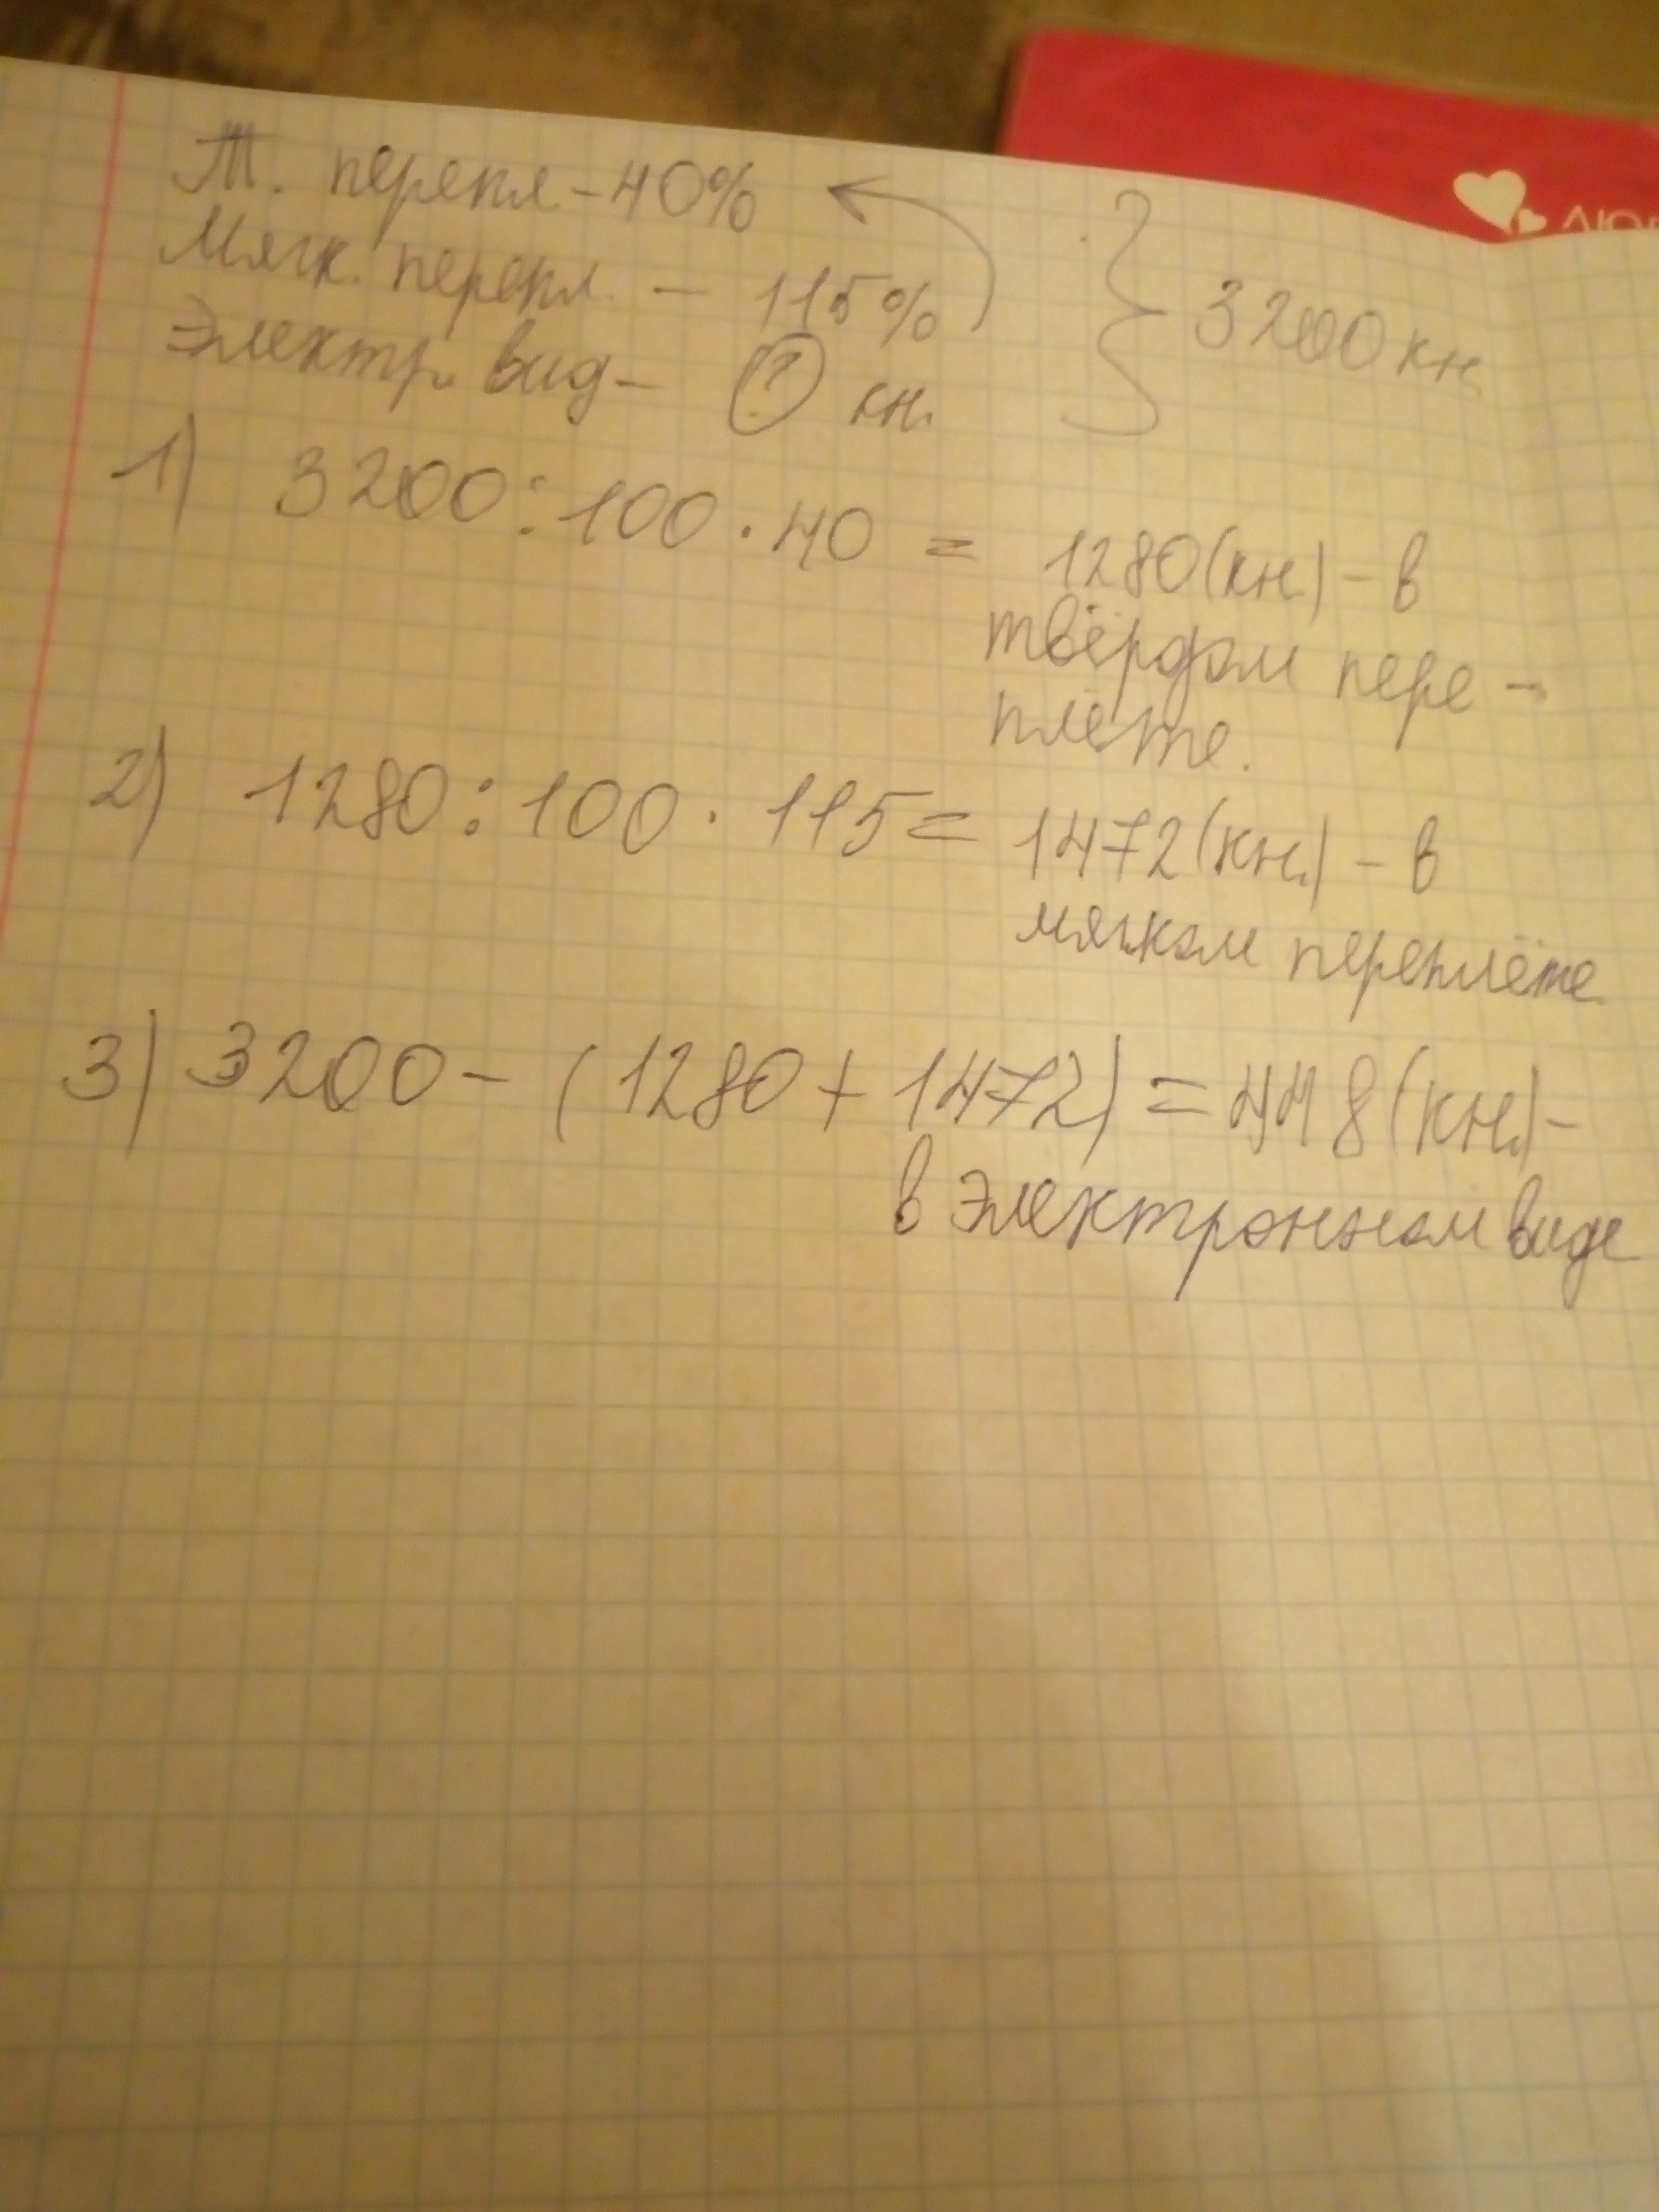 ЛЮБ
Т. перепл - 40%
Мягк. перепл. - 115%
3200 кн.
Электр. вид - ? кн.
1) 3200 : 100 · 40 = 1280 (кн.) - в
твёрдом пере-
плёте.
2) 1280 : 100 · 115 = 1472 (кн.) - в
мягком переплёте
3) 3200 - (1280 + 1472) = 448 (кн.) -
в электронном виде